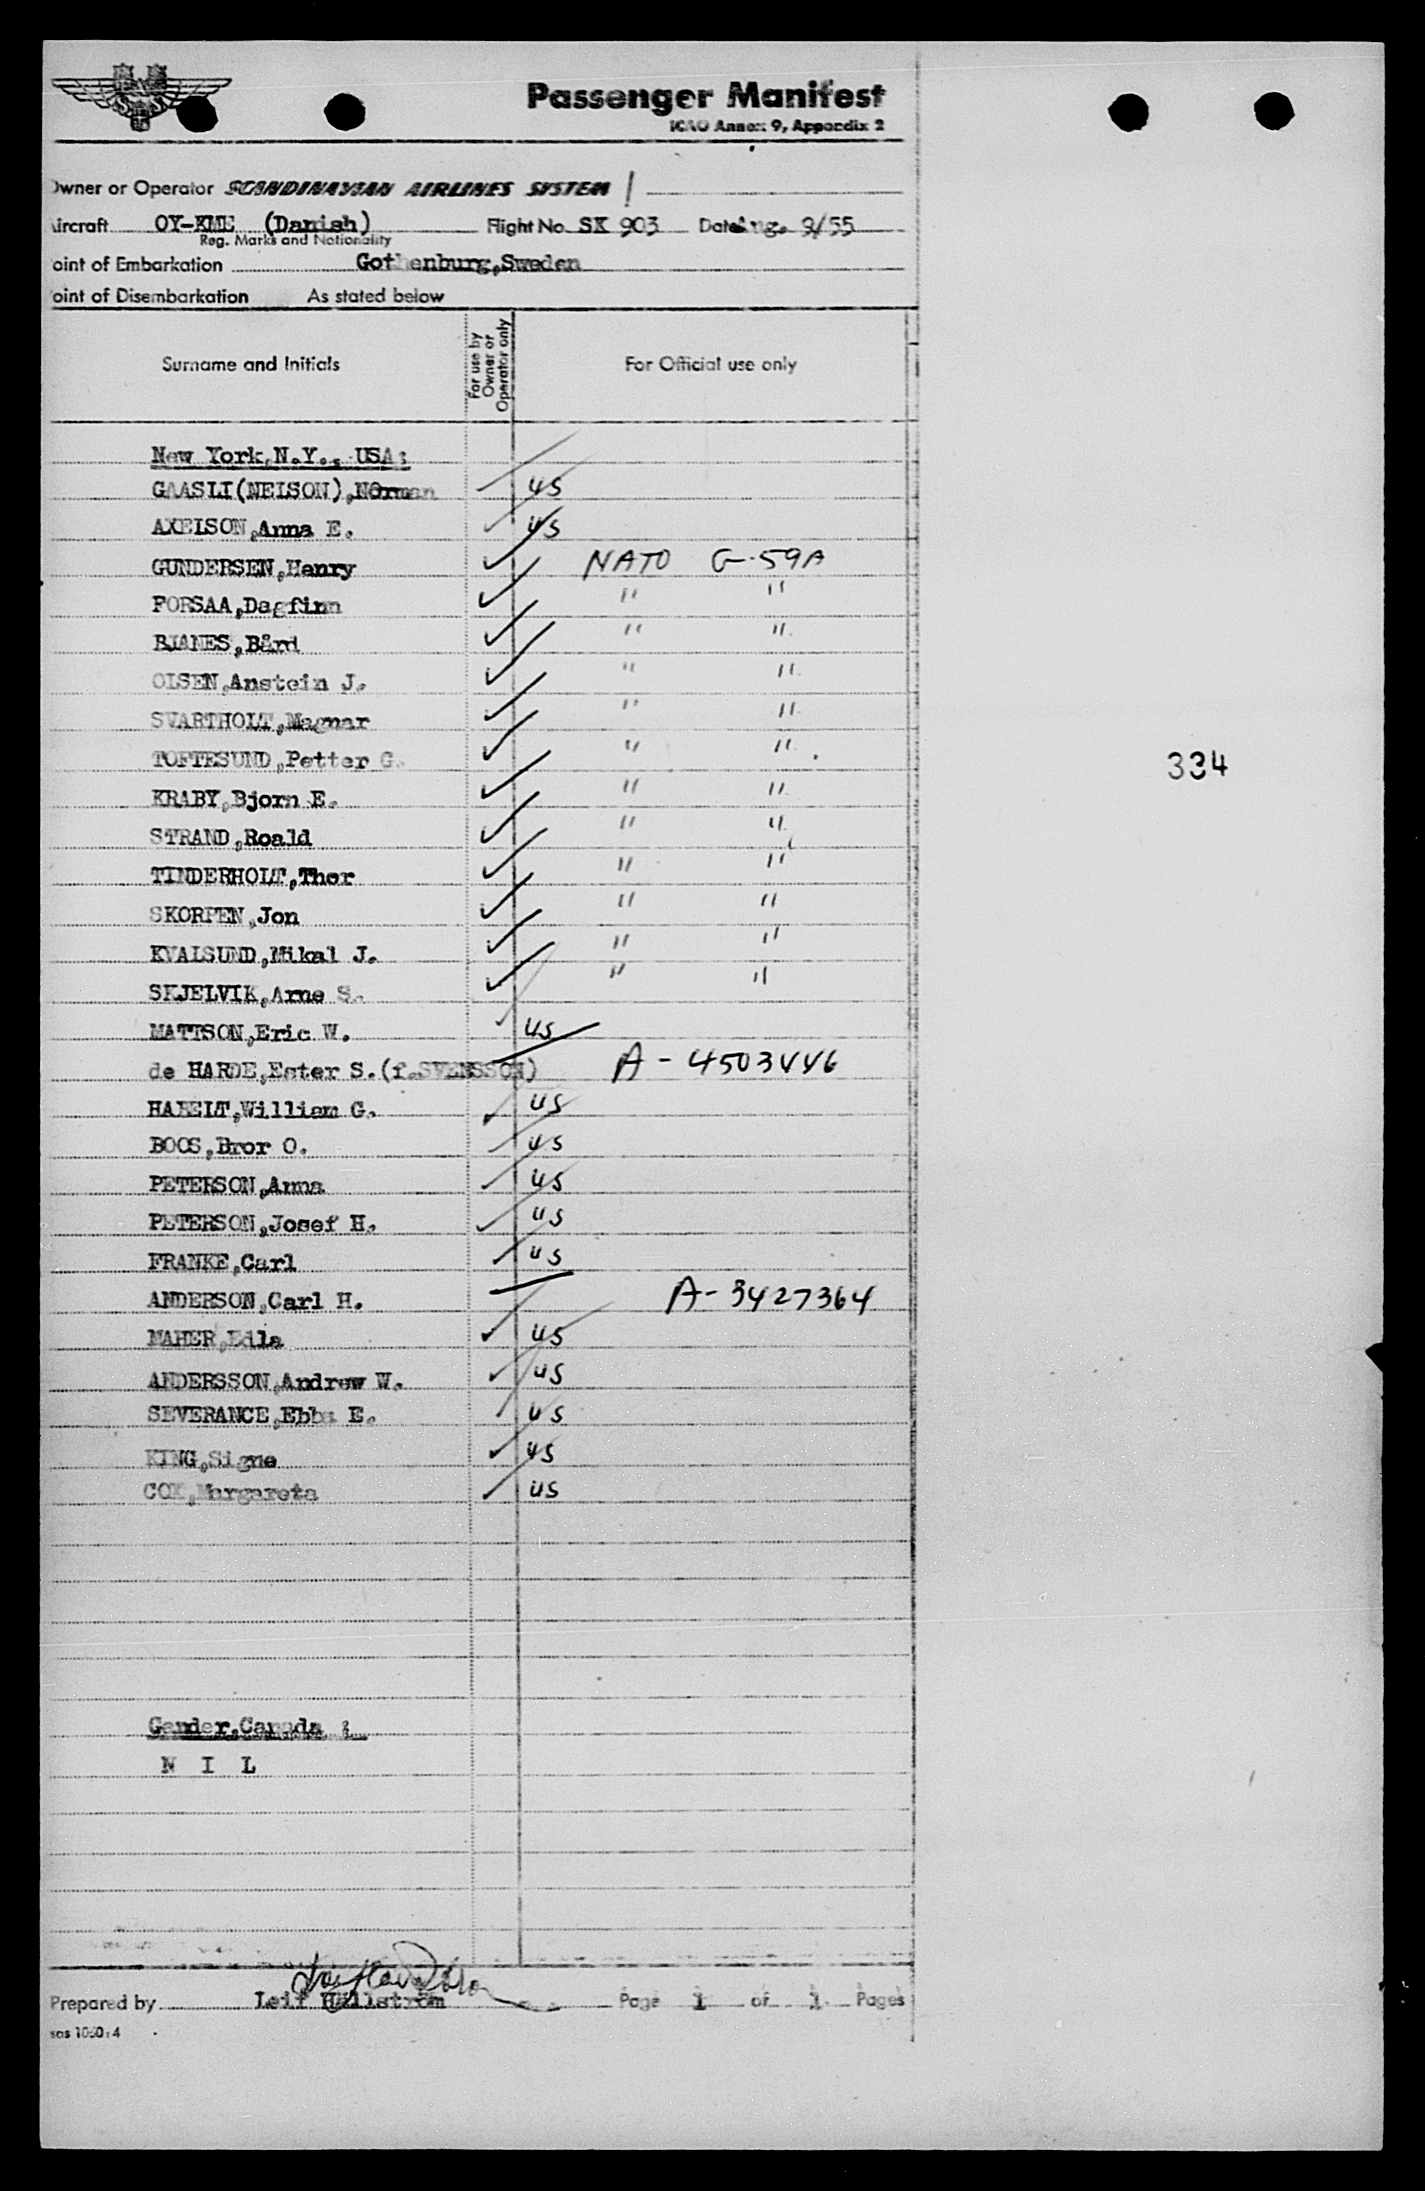 SAS
Passenger Manifest
ICAO Annex 9, Appendix 2
Owner or Operator SCANDINAVIAN AIRLINES SYSTEM
Aircraft OY-KME (Danish) Flight No. SK 903 Date Aug. 9/55
Reg. Marks and Nationality
oint of Embarkation Gothenburg,Sweden
oint of Disembarkation As stated below
Surname and Initials For use by Owner or Operator only For Official use only
New York,N.Y., USA:
GAASLI(NELSON),Norman US
AXELSON,Anna E. US
GUNDERSEN,Henry NATO G-59A
FORSAA,Dagfinn " "
BJANES,Bård " "
OLSEN,Anstein J. " "
SVARTHOLT,Magnar " "
TOFTESUND,Petter G. " "
KRABY,Bjorn E. " "
334
STRAND,Roald " "
TINDERHOLT,Thor " "
SKORPEN,Jon " "
KVALSUND,Mikal J. " "
SKJELVIK,Arne S. " "
MATTSON,Eric W. US
de HARDE,Ester S.(f.SVENSSON) A-4503446
HABELT,William G. US
BOOS,Bror O. US
PETERSON,Anna US
PETERSON,Josef H. US
FRANKE,Carl US
ANDERSON,Carl H. A-3427364
MAHER, US
ANDERSSON,Andrew W. US
SEVERANCE,Ebba E. US
KING,Signe US
COX,Margareta US
Gander,Canada :
N I L
Prepared by Leif Hällström Page 1 of 1 Pages